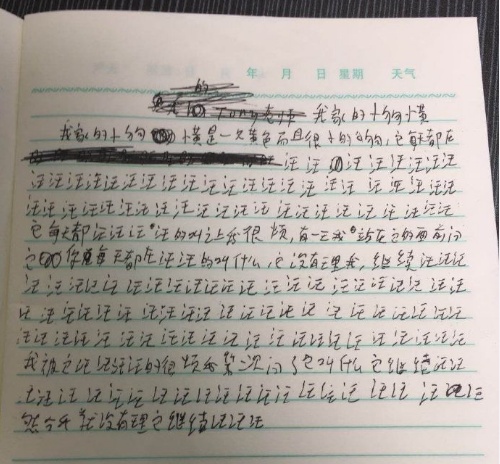 年 月 日 星期 天气
的
Tony老师 我家的小狗小黄
我家的小狗小黄是一只黄色而且很小的狗狗,它每天都在
汪汪汪汪汪汪汪汪
汪汪汪汪汪汪汪汪汪汪汪汪汪汪汪汪汪汪汪汪汪
汪汪汪汪汪汪汪汪汪汪汪汪汪汪汪汪汪汪汪汪汪汪
它每天都汪汪汪汪的叫让我很烦,有一天我站在它的面前问
它你每天都在汪汪的叫什么,它没有理我,继续汪汪汪
汪汪汪汪汪汪汪汪汪汪汪汪汪汪汪汪汪汪汪汪汪汪
汪汪汪汪汪汪汪汪汪汪汪汪汪汪汪汪汪汪汪汪汪
汪汪汪汪汪汪汪汪汪汪汪汪汪汪汪汪汪汪汪汪汪汪
我被它汪汪汪汪的很烦我第二次问了它叫什么它继续汪汪
汪汪汪汪汪汪汪汪汪汪汪汪汪汪汪汪汪汪汪汪
然今天我没有理它继续汪汪汪